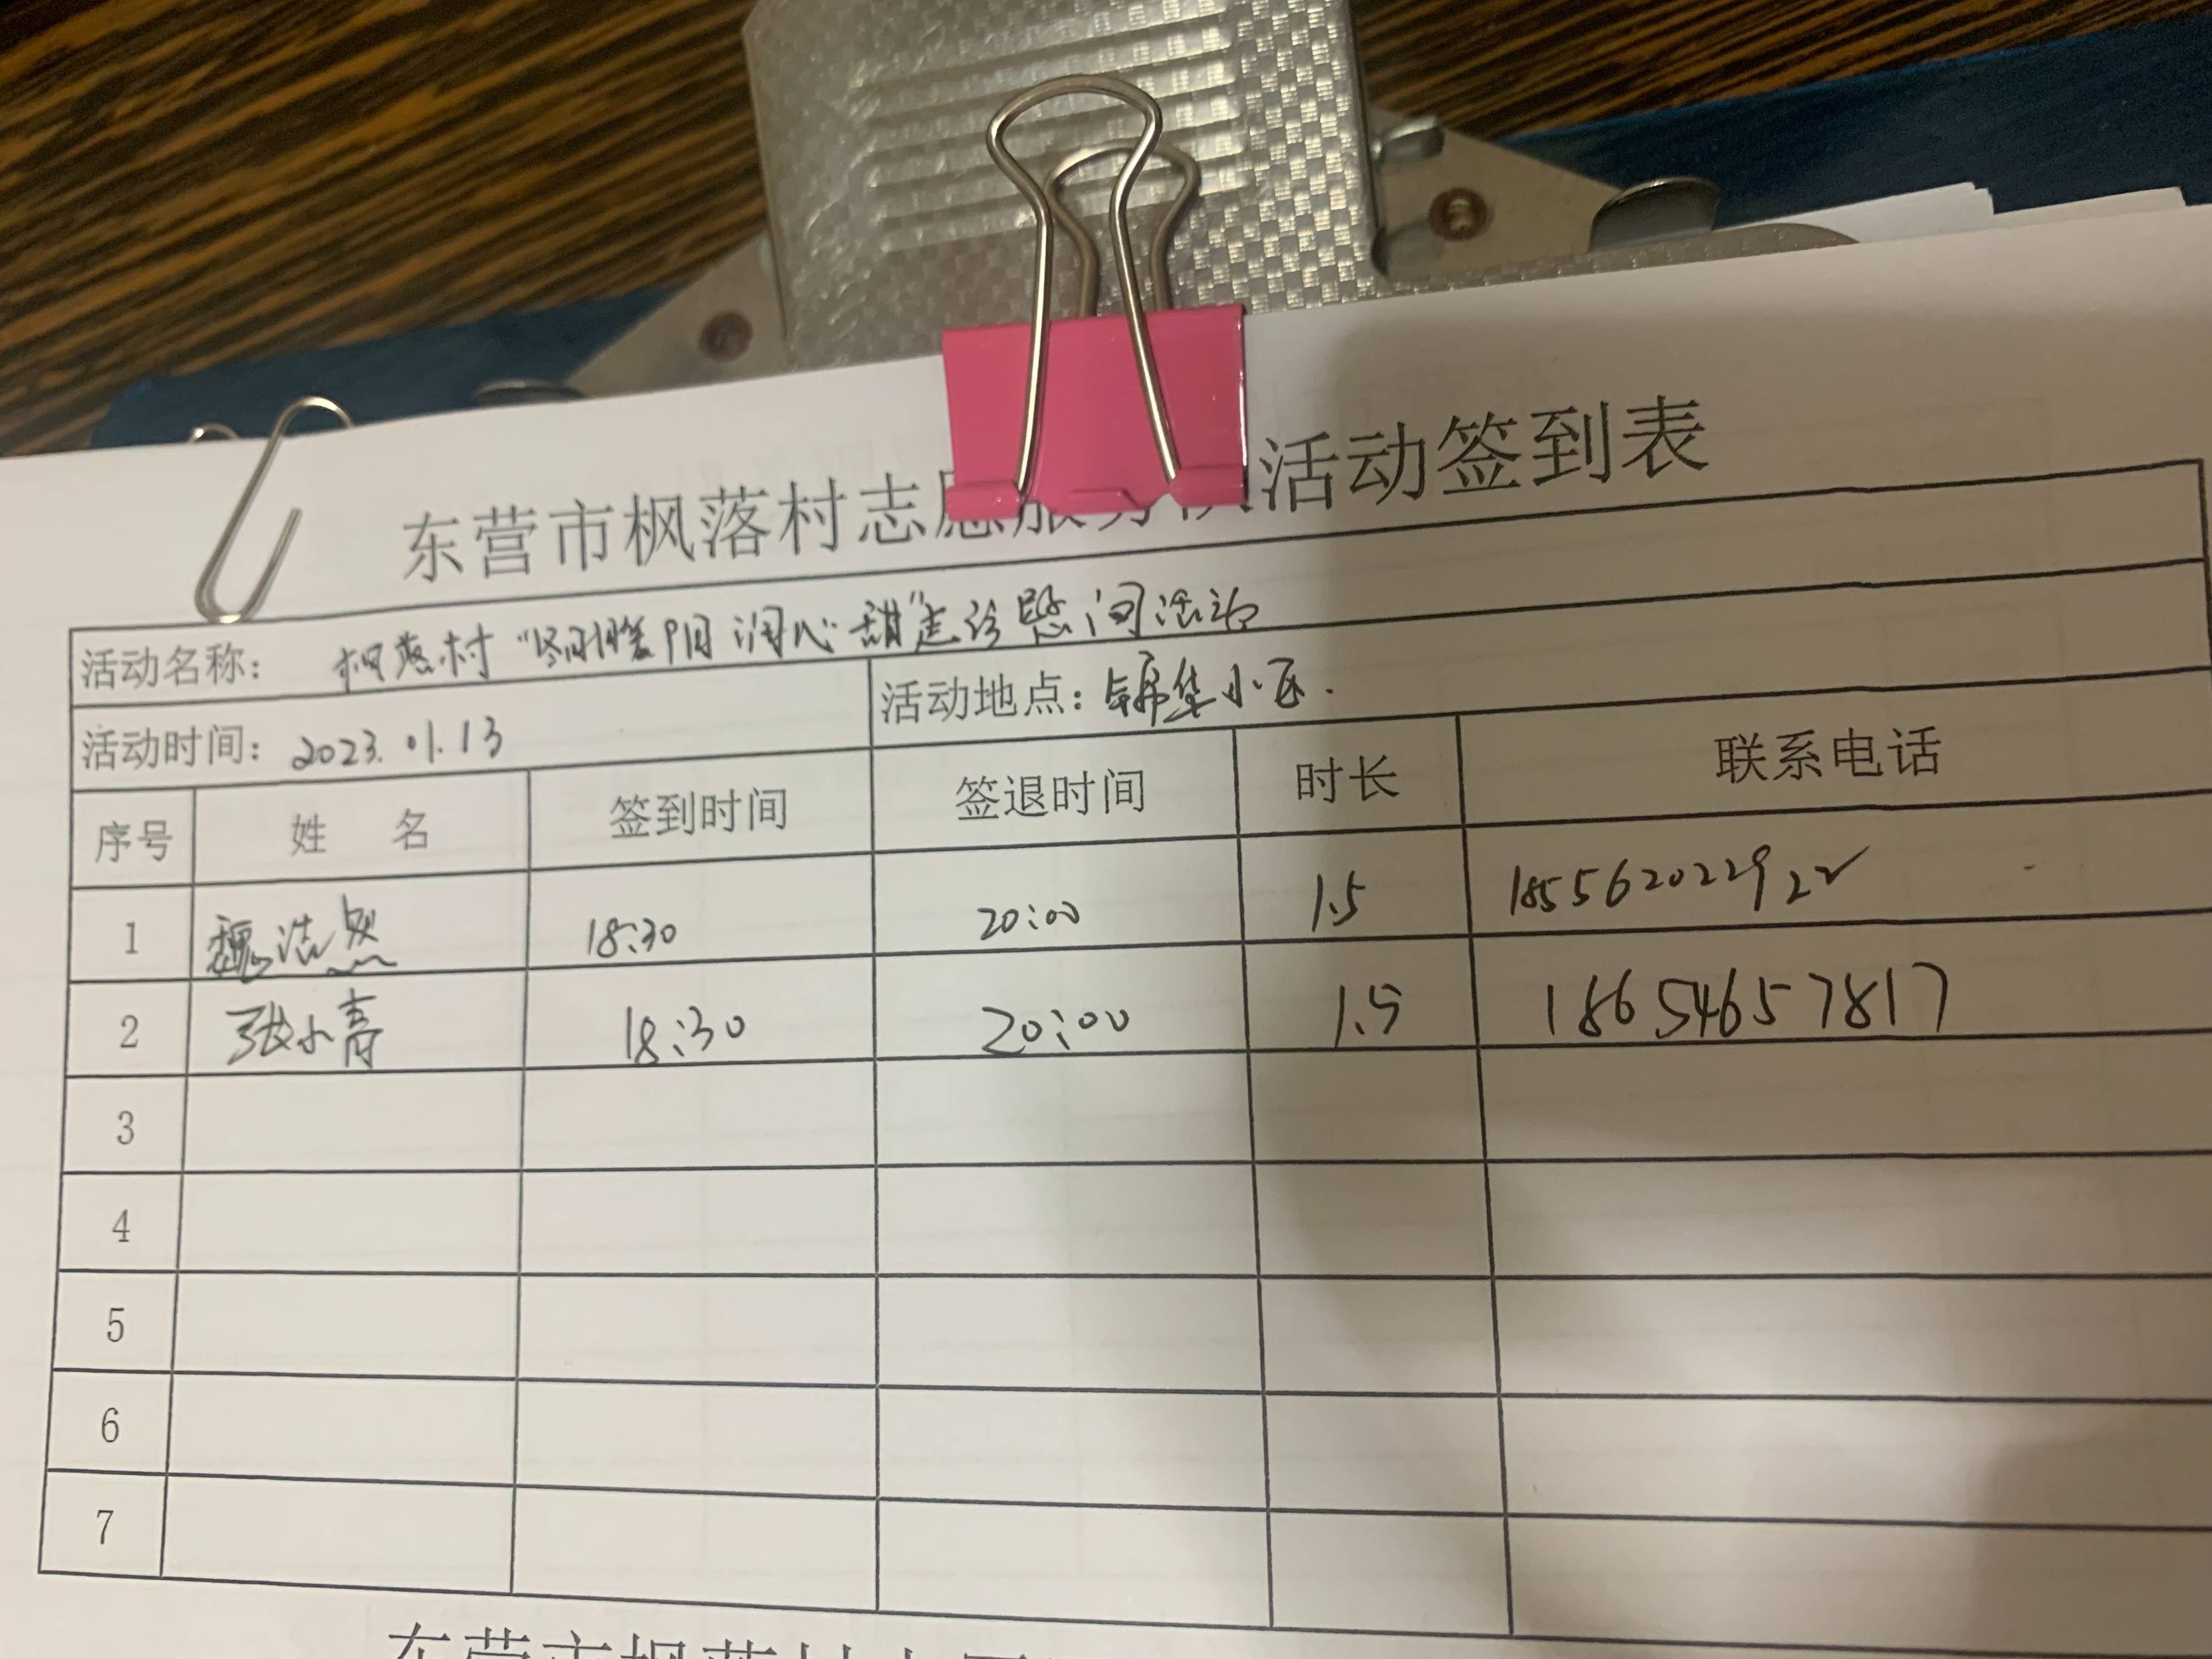 东营市枫落村志愿服务队活动签到表
活动名称： 枫落村“冬日暖阳 润心甜”走访慰问活动
活动时间：2023.01.13 活动地点：锦华小区.
序号 姓 名 签到时间 签退时间 时长 联系电话
1 魏浩 18:30 20:00 1.5 18556202292
2 张小青 18:30 20:00 1.5 18654657817
3
4
5
6
7
东营市枫落村志愿